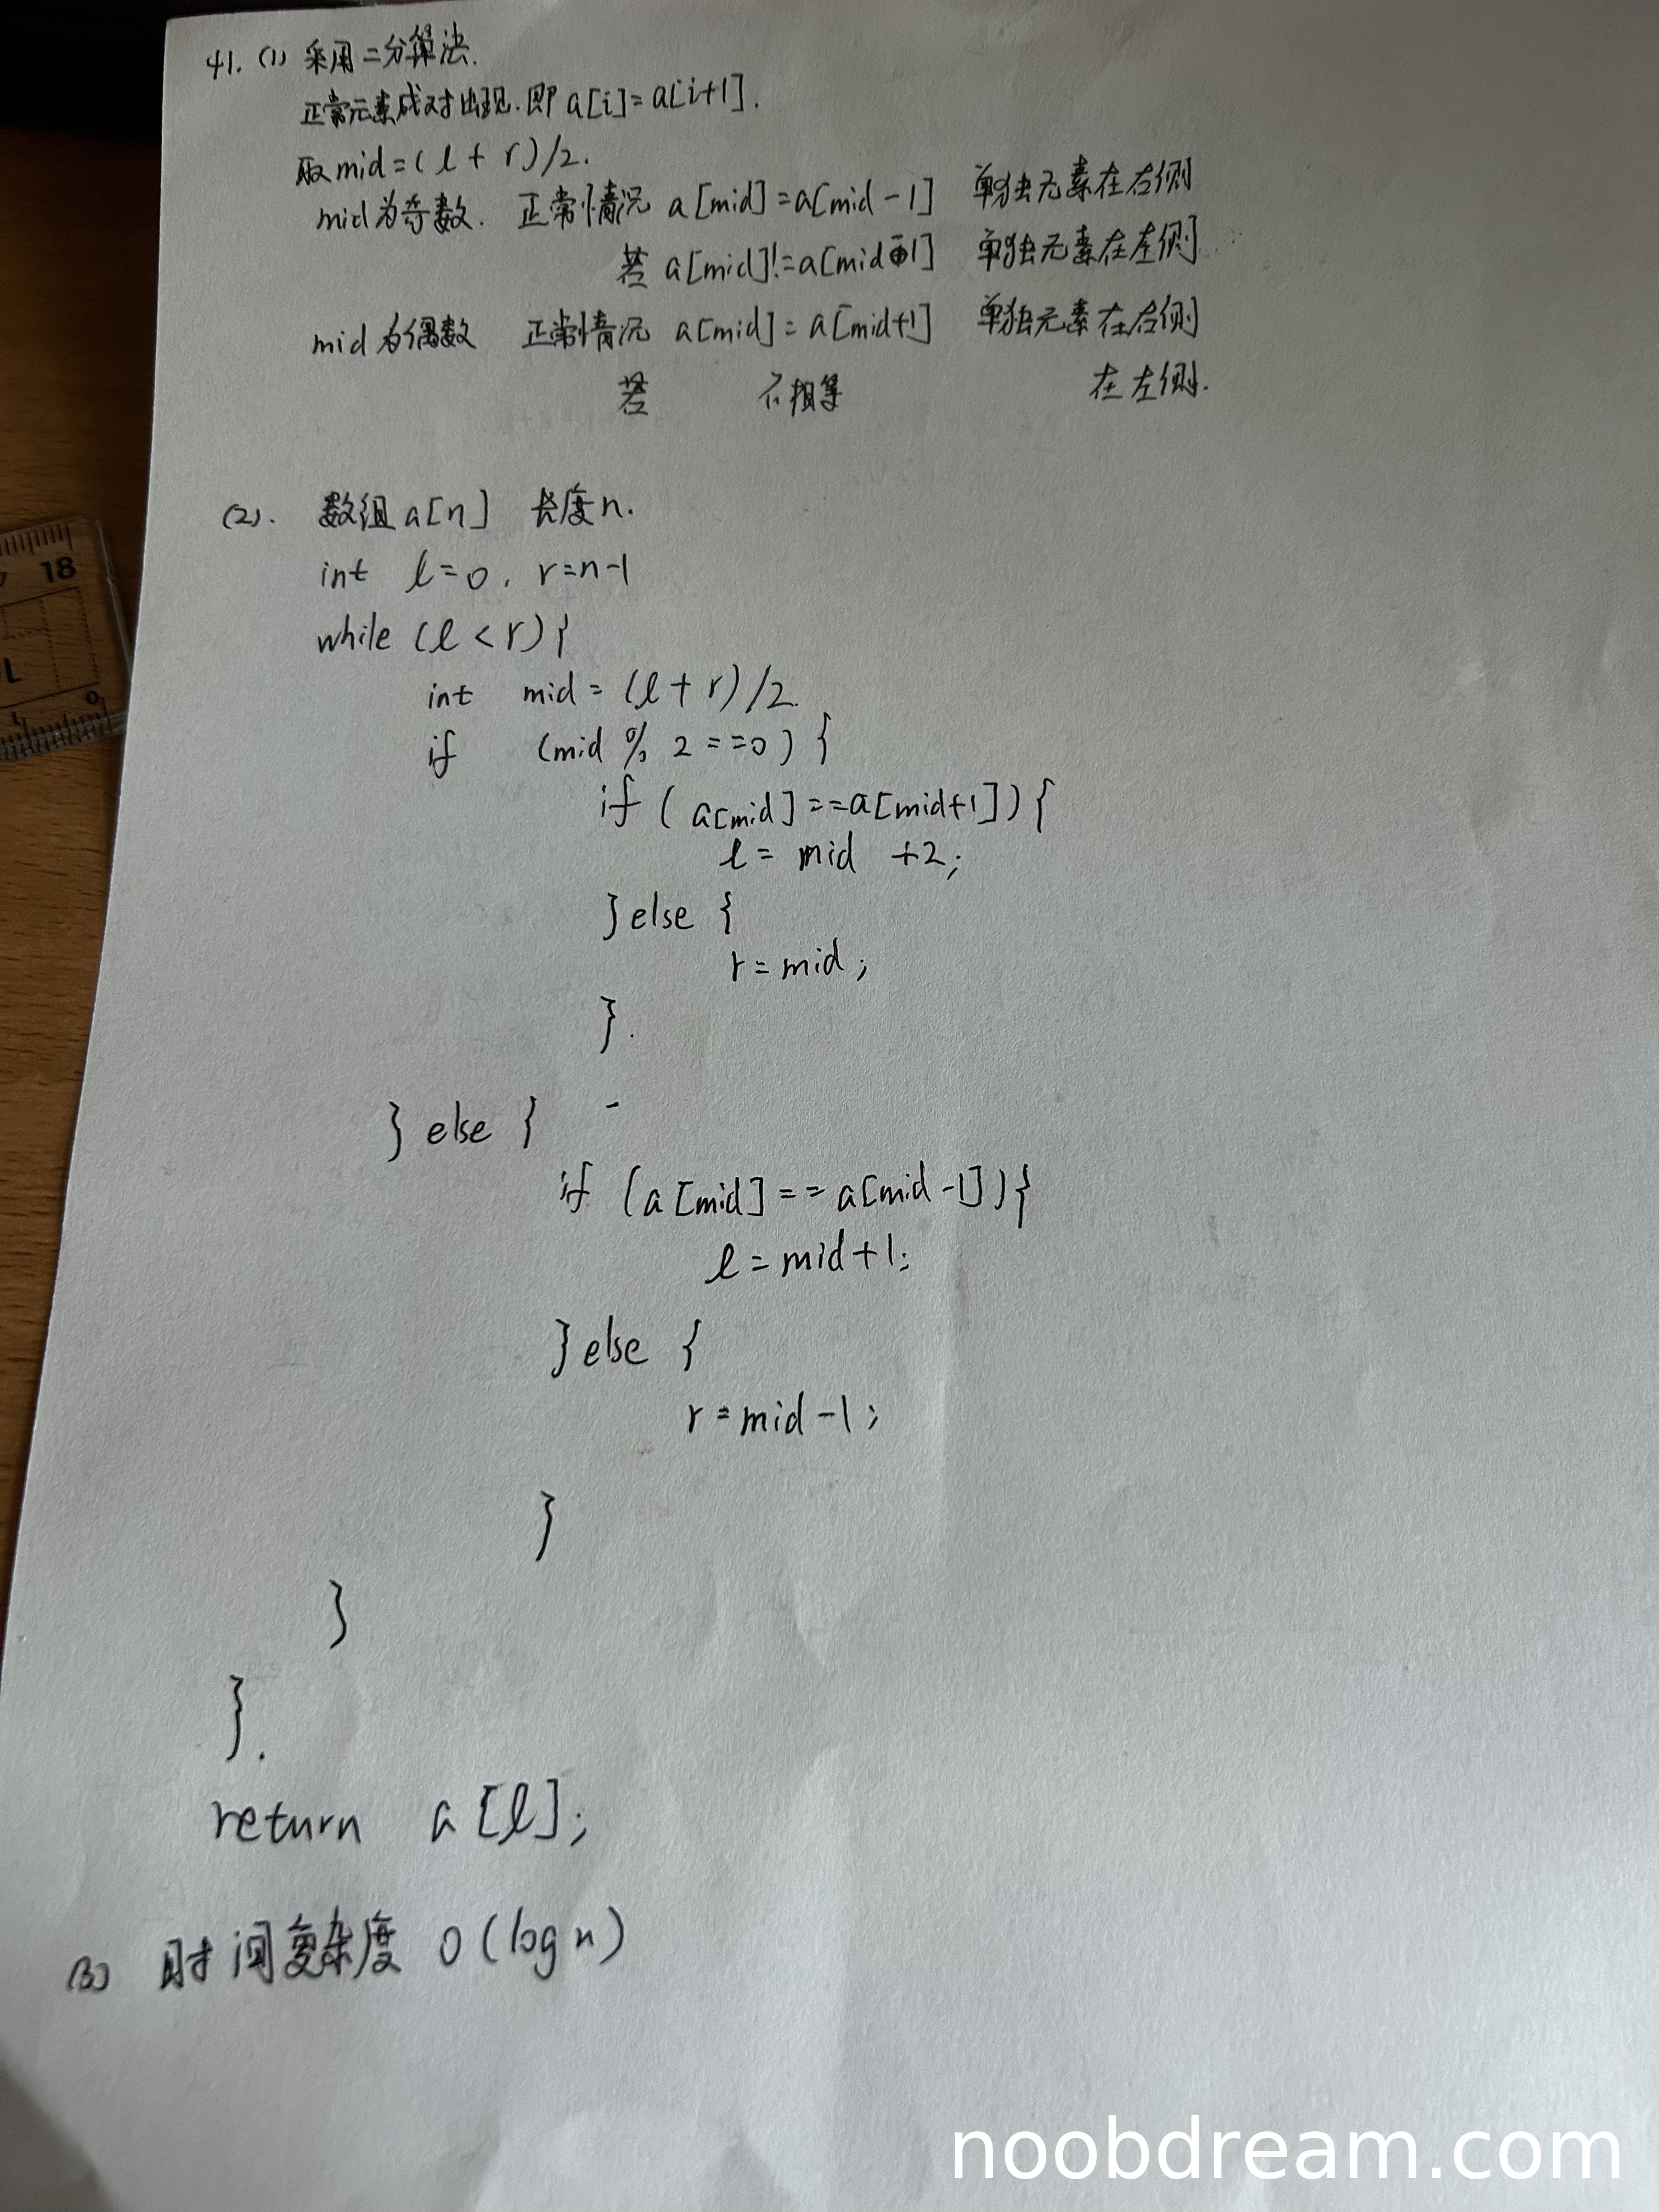 41. (1) 采用二分算法.
正常元素成对出现. 即 a[i]=a[i+1].
取 mid=(l+r)/2.
mid为奇数. 正常情况 a[mid]=a[mid-1] 单独元素在右侧
若 a[mid]!=a[mid-1] 单独元素在左侧
mid为偶数 正常情况 a[mid]=a[mid+1] 单独元素在右侧
若 不相等 在左侧.
(2). 数组a[n] 长度n.
int l=0, r=n-1
while (l<r){
int mid=(l+r)/2.
if (mid % 2==0) {
if (a[mid]==a[mid+1]){
l=mid +2;
}else {
r=mid;
}.
} else {
if (a[mid]==a[mid-1]){
l=mid+1;
}else {
r=mid-1;
}
}
}.
return a[l];
(3) 时间复杂度 O(logn)
18
L
0
noobdream.com